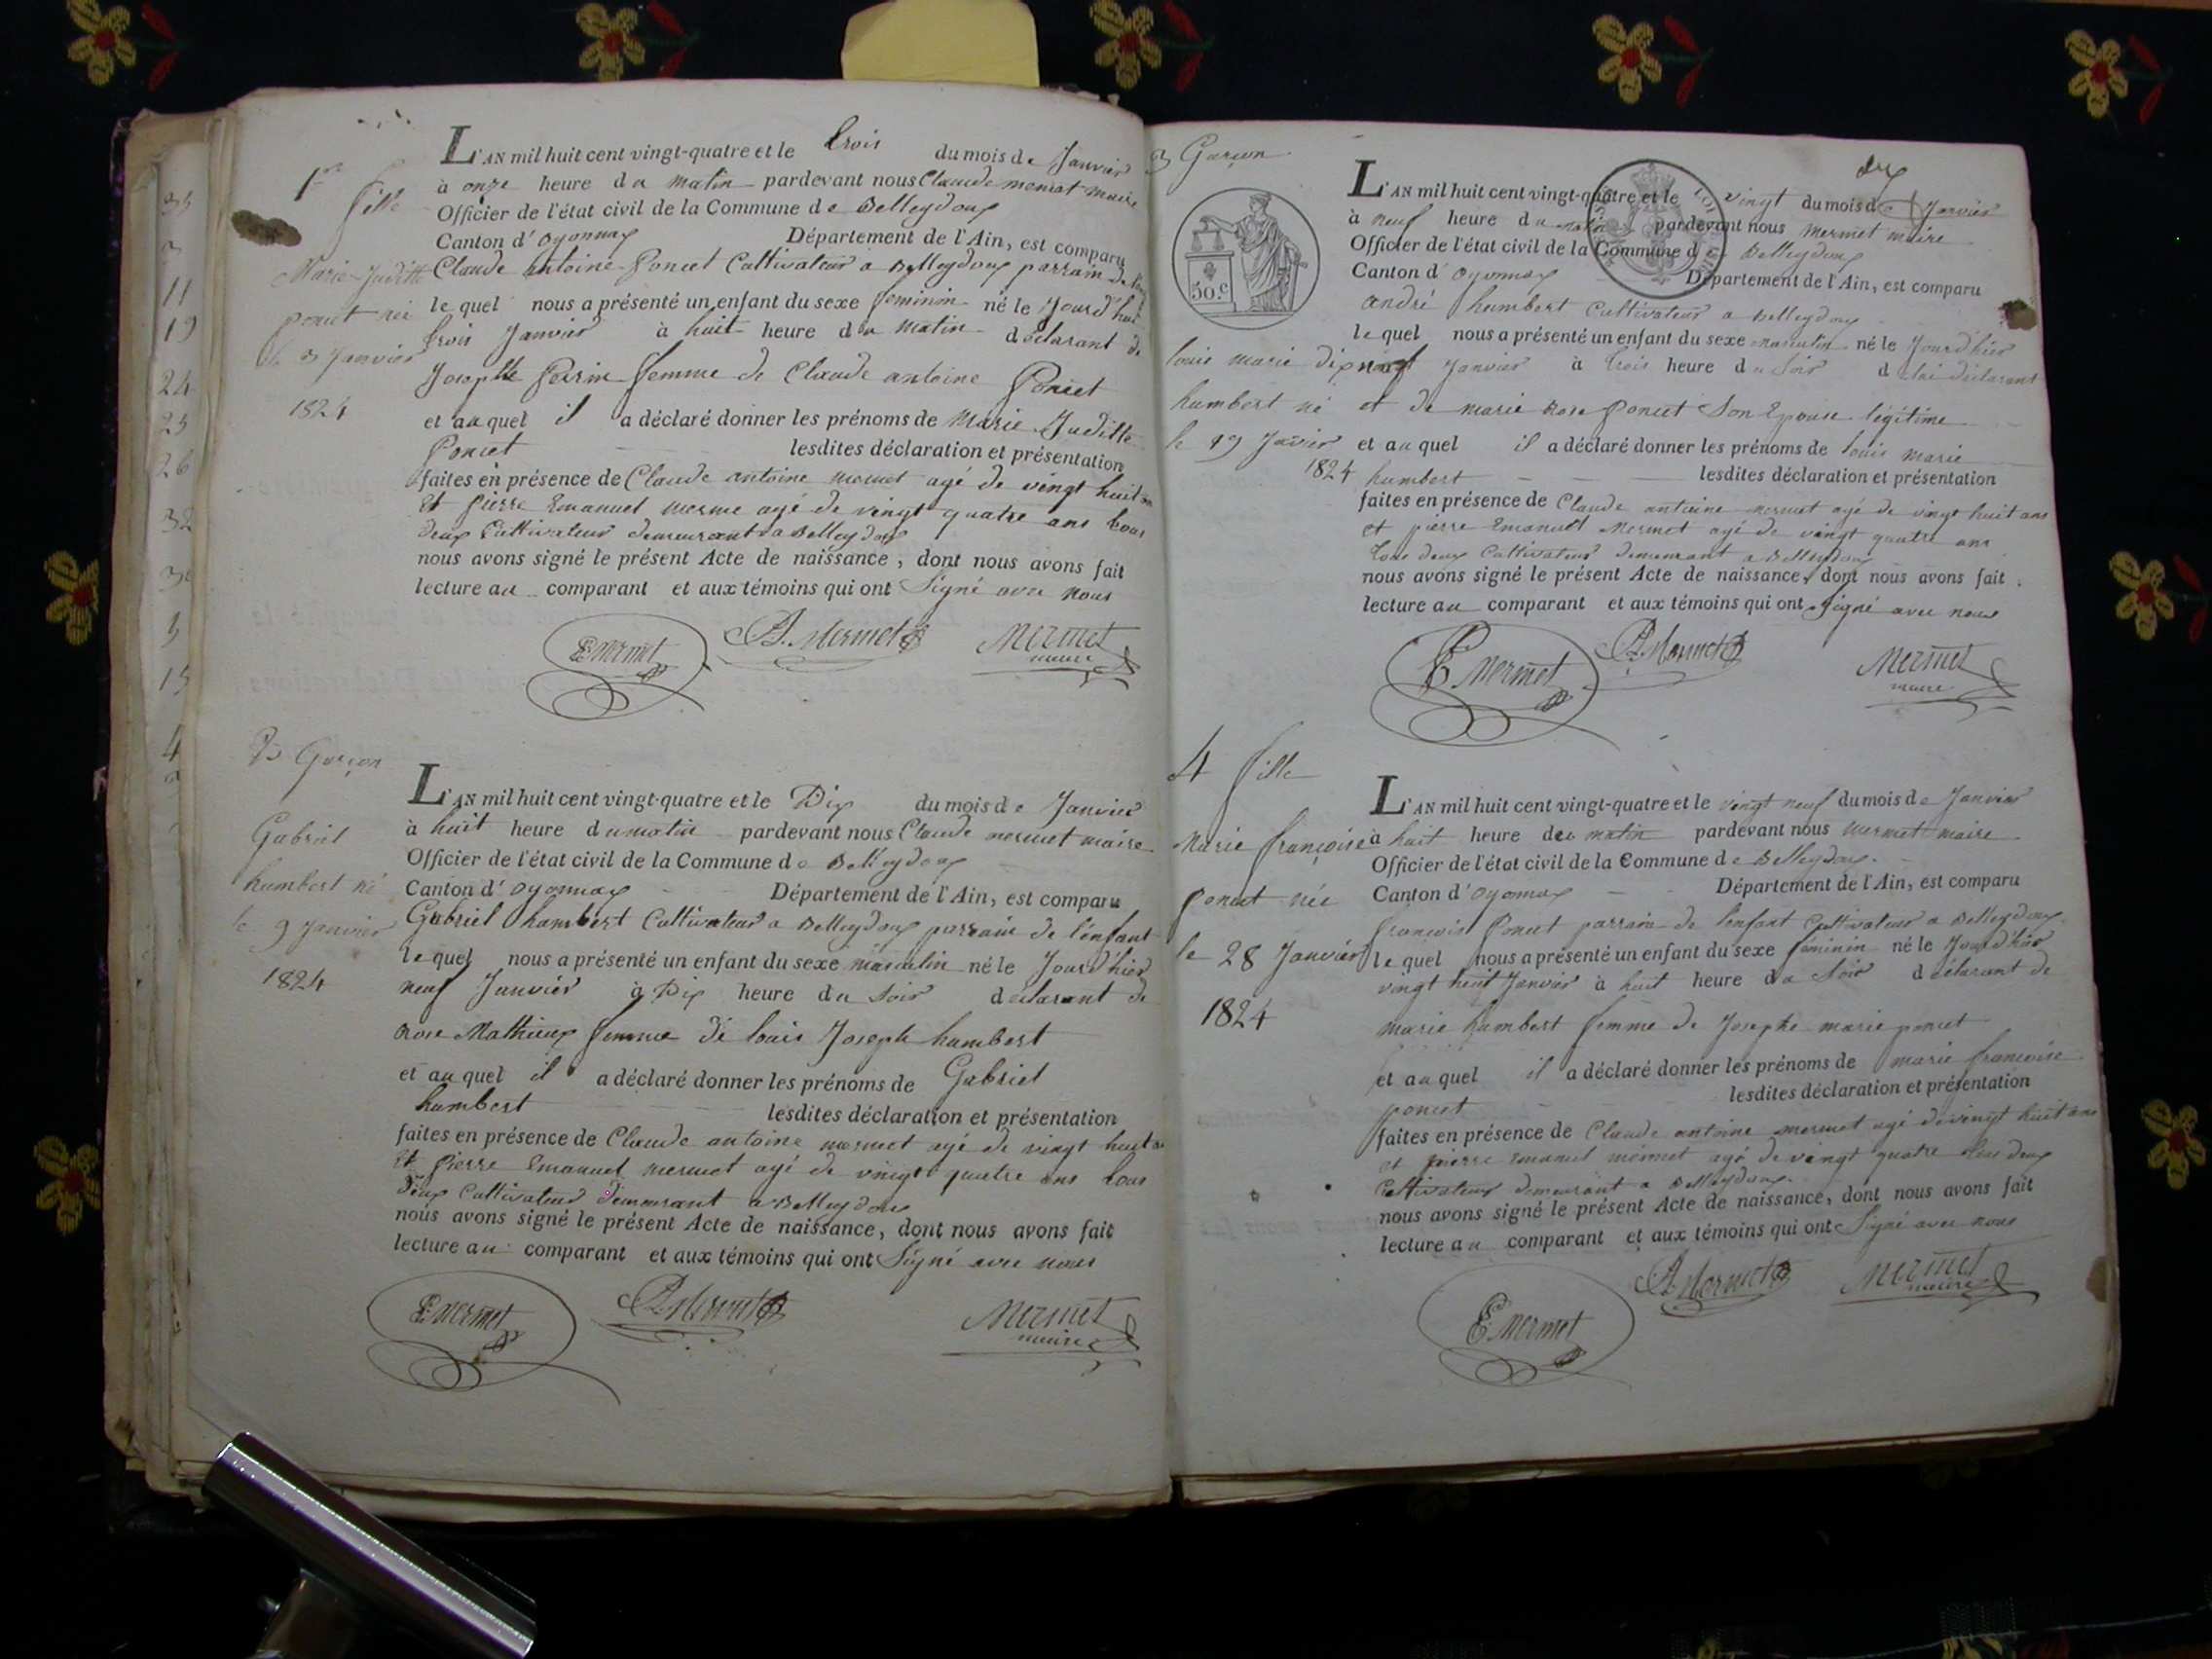 1re
fille
Marie Juditte
poncet née
le 3 Janvier
1824
L'AN mil huit cent vingt-quatre et le trois du mois de Janvier
à onze heure du matin pardevant nous Claude mermet maire
Officier de l'état civil de la Commune de Belleydoux
Canton d'Oyonnax Département de l'Ain, est comparu
Claude antoine Poncet Cultivateur a Belleydoux parrain de
le quel nous a présenté un enfant du sexe feminin né le Jourd'hui
trois Janvier à huit heure du matin déclarant de
Josephte Perrin femme de Claude antoine Poncet
et auquel il a déclaré donner les prénoms de Marie Juditte
Poncet lesdites déclaration et présentation
faites en présence de Claude antoine mermet agé de vingt huit ans
Et Pierre Emanuel merme agé de vingt quatre ans tous
deux Cultivateur demeurant a Belleydoux
nous avons signé le présent Acte de naissance, dont nous avons fait
lecture au comparant et aux témoins qui ont Signé avec nous
E mermet A. Mermet Mermet
maire
2 Garçon
Gabriel
humbert né
le 9 Janvier
1824
L'AN mil huit cent vingt-quatre et le Dix du mois de Janvier
à huit heure du matin pardevant nous Claude mermet maire
Officier de l'état civil de la Commune de Belleydoux
Canton d'Oyonnax Département de l'Ain, est comparu
Gabriel humbert Cultivateur a Belleydoux parrain de l'enfant
le quel nous a présenté un enfant du sexe masculin né le Jourd'hier
neuf Janvier à Dix heure du soir déclarant de
Rose Mathieux femme de louis Joseph humbert
et auquel il a déclaré donner les prénoms de Gabriel
humbert lesdites déclaration et présentation
faites en présence de Claude antoine mermet agé de vingt huit ans
Et Pierre Emanuel mermet agé de vingt quatre ans tous
deux Cultivateur demeurant a Belleydoux
nous avons signé le présent Acte de naissance, dont nous avons fait
lecture au comparant et aux témoins qui ont Signé avec nous
E mermet A. Mermet Mermet
maire
3 Garçon
50.c
louis marie
humbert né
le 19 Janvier
1824
L'AN mil huit cent vingt-quatre et le vingt du mois de Janvier
à neuf heure du matin pardevant nous mermet maire
Officier de l'état civil de la Commune de Belleydoux
Canton d'Oyonnax Département de l'Ain, est comparu
andré humbert Cultivateur a Belleydoux
le quel nous a présenté un enfant du sexe masculin né le Jourd'hier
dix neuf Janvier à trois heure du soir de lui déclarant
et de marie Rose Poncet Son Epouse légitime
et auquel il a déclaré donner les prénoms de louis marie
humbert lesdites déclaration et présentation
faites en présence de Claude antoine mermet agé de vingt huit ans
et pierre Emanuel Mermet agé de vingt quatre ans
tous deux Cultivateur demeurant a Belleydoux
nous avons signé le présent Acte de naissance, dont nous avons fait
lecture au comparant et aux témoins qui ont signé avec nous
E mermet A. Mermet Mermet
maire
4 fille
Marie françoise
poncet née
le 28 Janvier
1824
L'AN mil huit cent vingt-quatre et le vingt neuf du mois de Janvier
à huit heure du matin pardevant nous mermet maire
Officier de l'état civil de la Commune de Belleydoux
Canton d'Oyonnax Département de l'Ain, est comparu
francois Poncet parrain de l'enfant Cultivateur a Belleydoux
le quel nous a présenté un enfant du sexe féminin né le Jourd'hier
vingt huit Janvier à huit heure du Soir déclarant de
marie humbert femme de Josephe marie poncet
et auquel il a déclaré donner les prénoms de marie francoise
poncet lesdites déclaration et présentation
faites en présence de Claude antoine mermet agé de vingt huit ans
et pierre Emanuel mermet agé de vingt quatre tous deux
Cultivateur demeurant a Belleydoux
nous avons signé le présent Acte de naissance, dont nous avons fait
lecture au comparant et aux témoins qui ont Signé avec nous
E mermet A. Mermet Mermet
maire